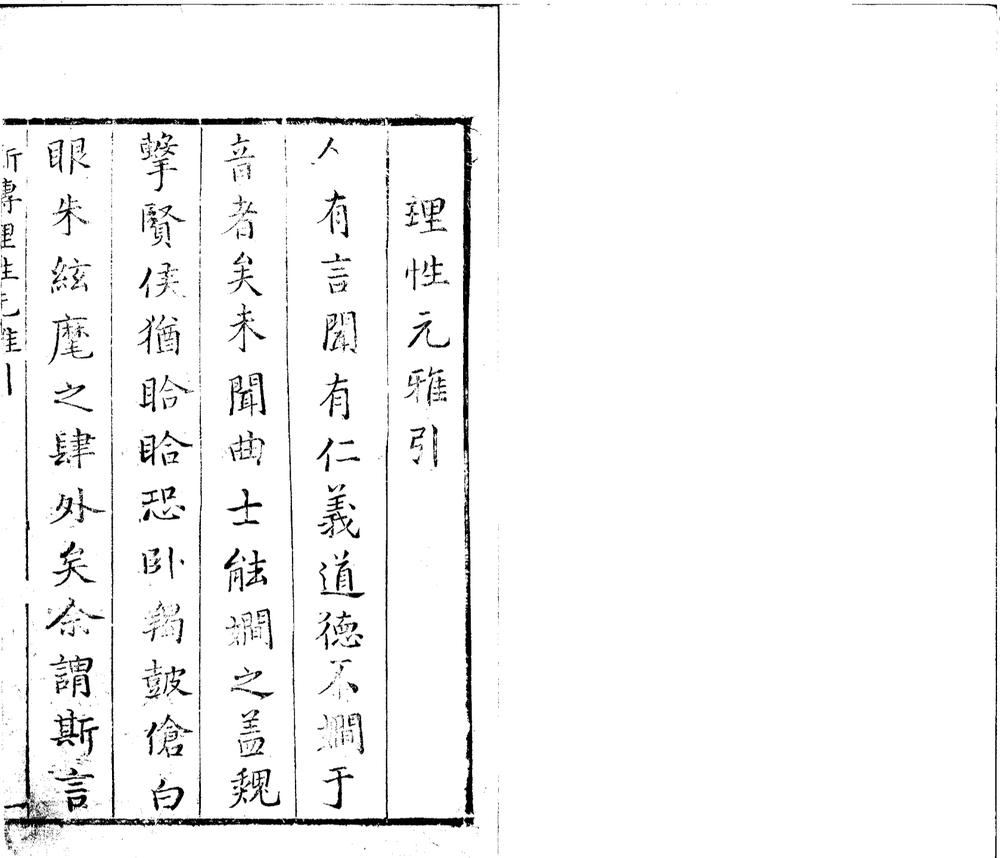 理性元雅引
人有言聞有仁義道德不嫺于
音者矣未聞曲士能嫺之盖魏
擊賢侯猶眙眙恐卧羯鼓傖白
眼朱絃麾之肆外矣余謂斯言
新傳理性元雅引
一